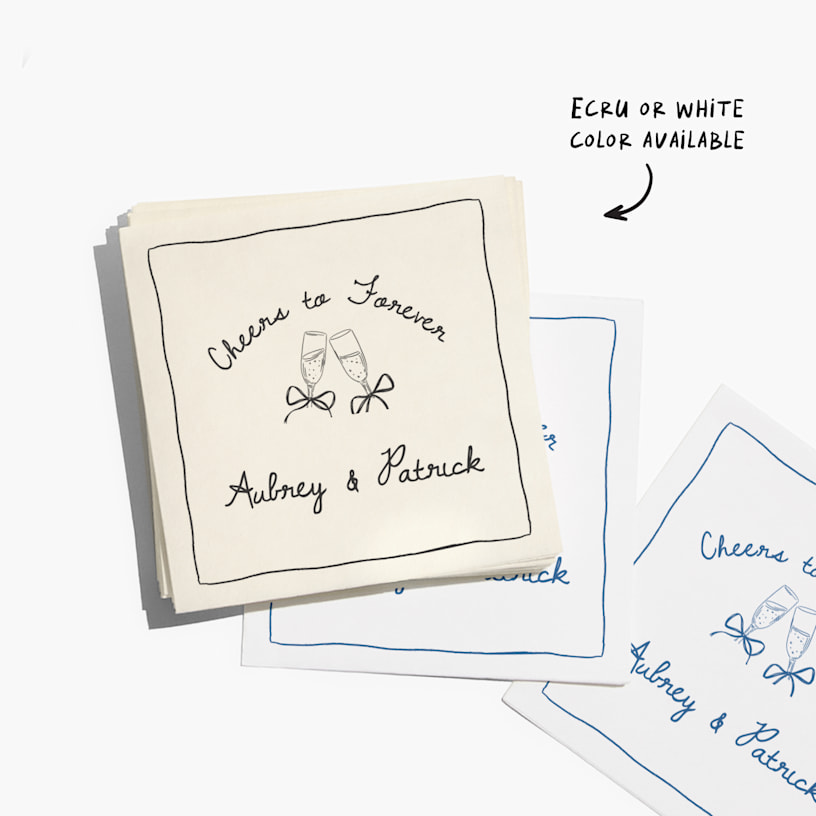 ECRU OR WHITE
COLOR AVAILABLE
Cheers to Forever
Aubrey & Patrick
Cheers to
Aubrey & Patrick